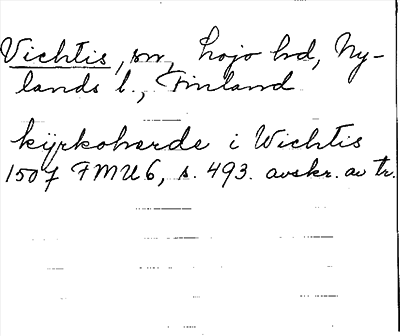 Vichtis, sn, Lojo hd, Ny-
lands l., Finland
kyrkoherde i Wichtis
1507 FMU 6, s. 493. avskr. av tr.